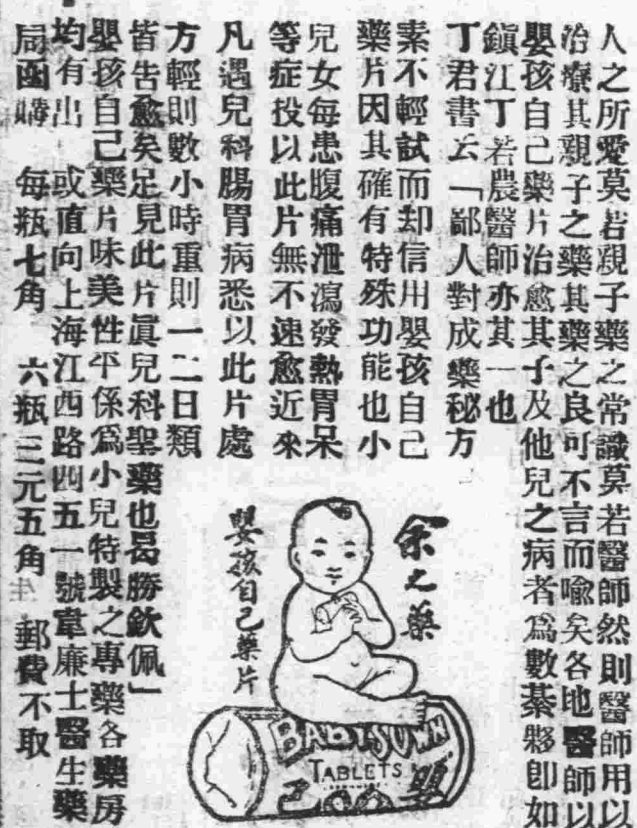 人之所愛莫若親子藥之常識莫若醫師然則醫師用以
治療其親子之藥其藥之良可不言而喻矣各地醫師以
嬰孩自己藥片治愈其子及他兒之病者爲數綦夥卽如
鎮江丁若農醫師亦其一也
丁君書云「鄙人對成藥秘方
素不輕試而却信用嬰孩自己
藥片因其確有特殊功能也小
兒女每患腹痛泄瀉發熱胃呆
等症投以此片無不速愈近來
凡遇兒科腸胃病悉以此片處
方輕則數小時重則一二日類
皆告愈矣足見此片眞兒科聖藥也曷勝欽佩」
嬰孩自己藥片味美性平係爲小兒特製之專藥各藥房
均有出 或直向上海江西路四五一號韋廉士醫生藥
局函購 每瓶七角 六瓶三元五角 郵費不取
余之藥
嬰孩自己藥片
BABY'S OWN
TABLETS
嬰
己